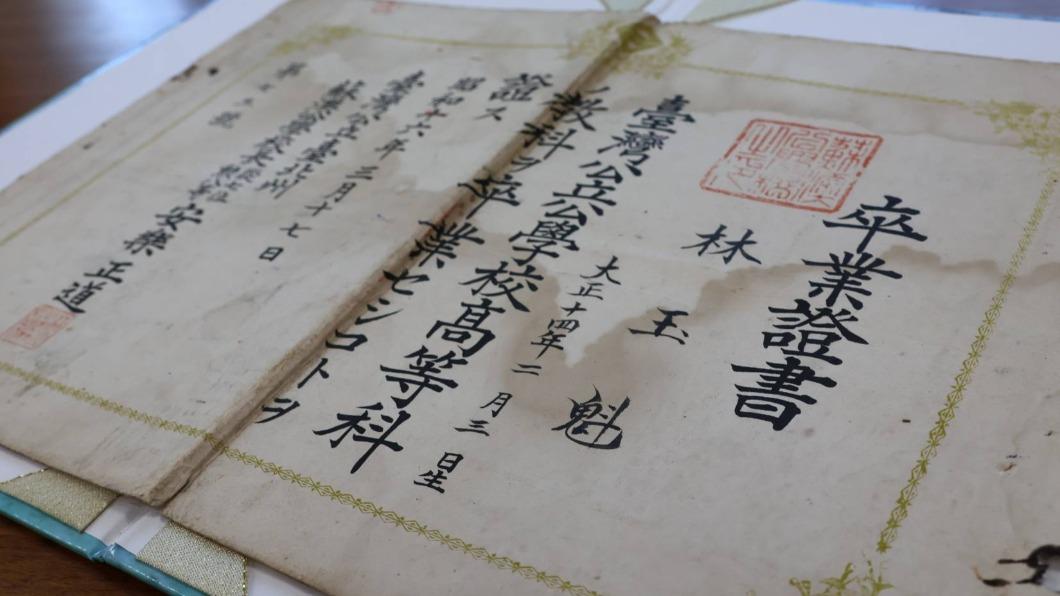 卒業證書
林玉魁
大正十四年二月三日生
臺灣公立公學校高等科
教科ヲ卒業セシコトヲ
證ス
昭和十六年三月十七日
臺灣公立臺北州
安樂正道